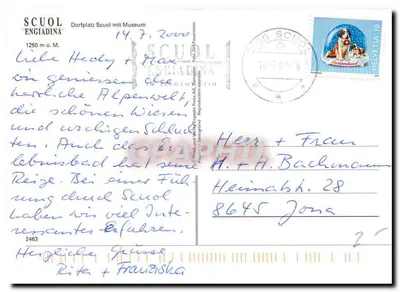 SCUOL
ENGIADINA
Dorfplatz Scuol mit Museum
1250 m ü. M.
14.7.2000
Liebe Hedy + Max
wir geniessen die
herrliche Alpenwelt
die schönen Wiesen
und wuchtigen Schluch-
ten. Auch das
lebnisbad hat seine
Reize. Bei einer Füh-
rung durch Scuol
haben wir viel Inte-
ressantes erfahren.
Herzliche Grüsse
Rita + Franziska
2463
SCUOL
ENGIADINA
HELVETIA 70
Herr + Frau
A. + H. Bachmann
Heimatstr. 28
8645 Jona
2.-